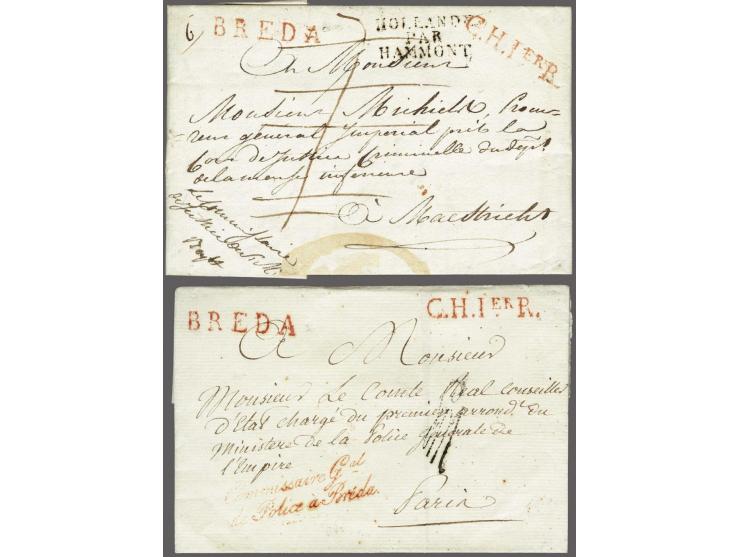 6 BREDA
HOLLANDE
PAR
HAMMONT
C.H.1ERR.
A Monsieur
Monsieur Michiels, Procu-
reur général Impérial près la
Cour de Justice Criminelle du Dépt.
de la meuse inferieure
à Maestricht
Le Commissaire
BREDA
C.H.1ERR.
A Monsieur
Monsieur Le Comte Réal Conseiller
d'Etat chargé du premier arrondt. du
Ministere de la Police générale de
l'Empire
Commissaire Gal
de Police à Breda.
Paris